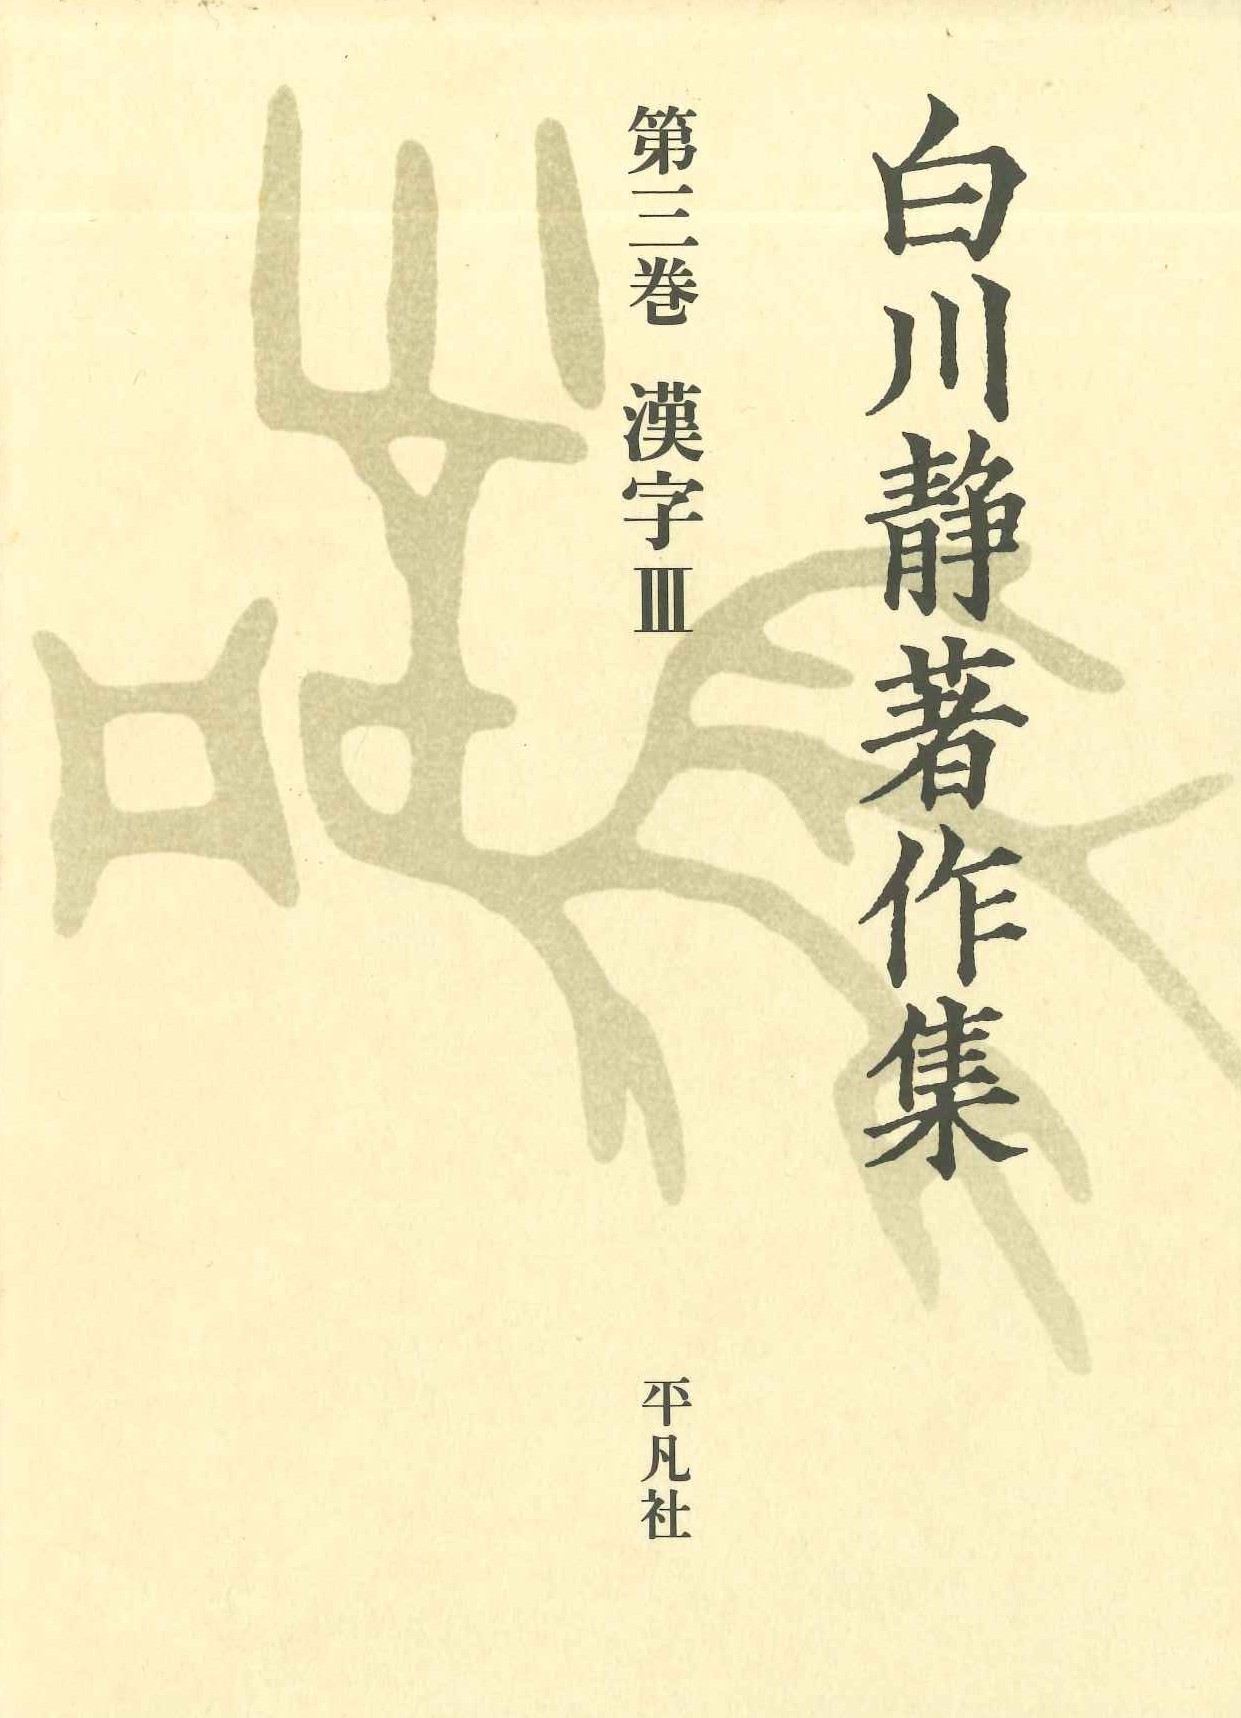 白川静著作集
第三巻 漢字Ⅲ
平凡社